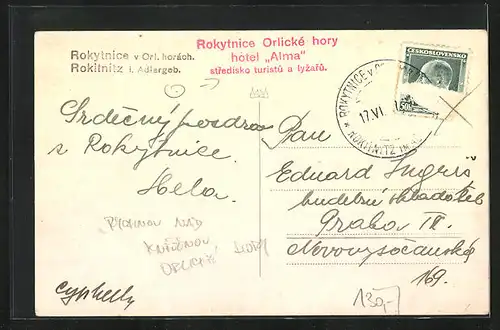 Rokytnice v Orl. horách.
Rokitnitz i. Adlergeb.
Rokytnice Orlické hory
hotel „Alma"
středisko turistů a lyžařů.
ČESKOSLOVENSKO
ROKYTNICE v
17.VI.
ROKITNITZ IM
Srdečný pozdrav
z Rokytnice.
Hela.
Pan
Eduard Ingriš
hudební skladatel
Praha
Novovysočanská
169.
RYCHNOV NAD
KNĚŽNOU,
ORLICKÉ HORY
130,-